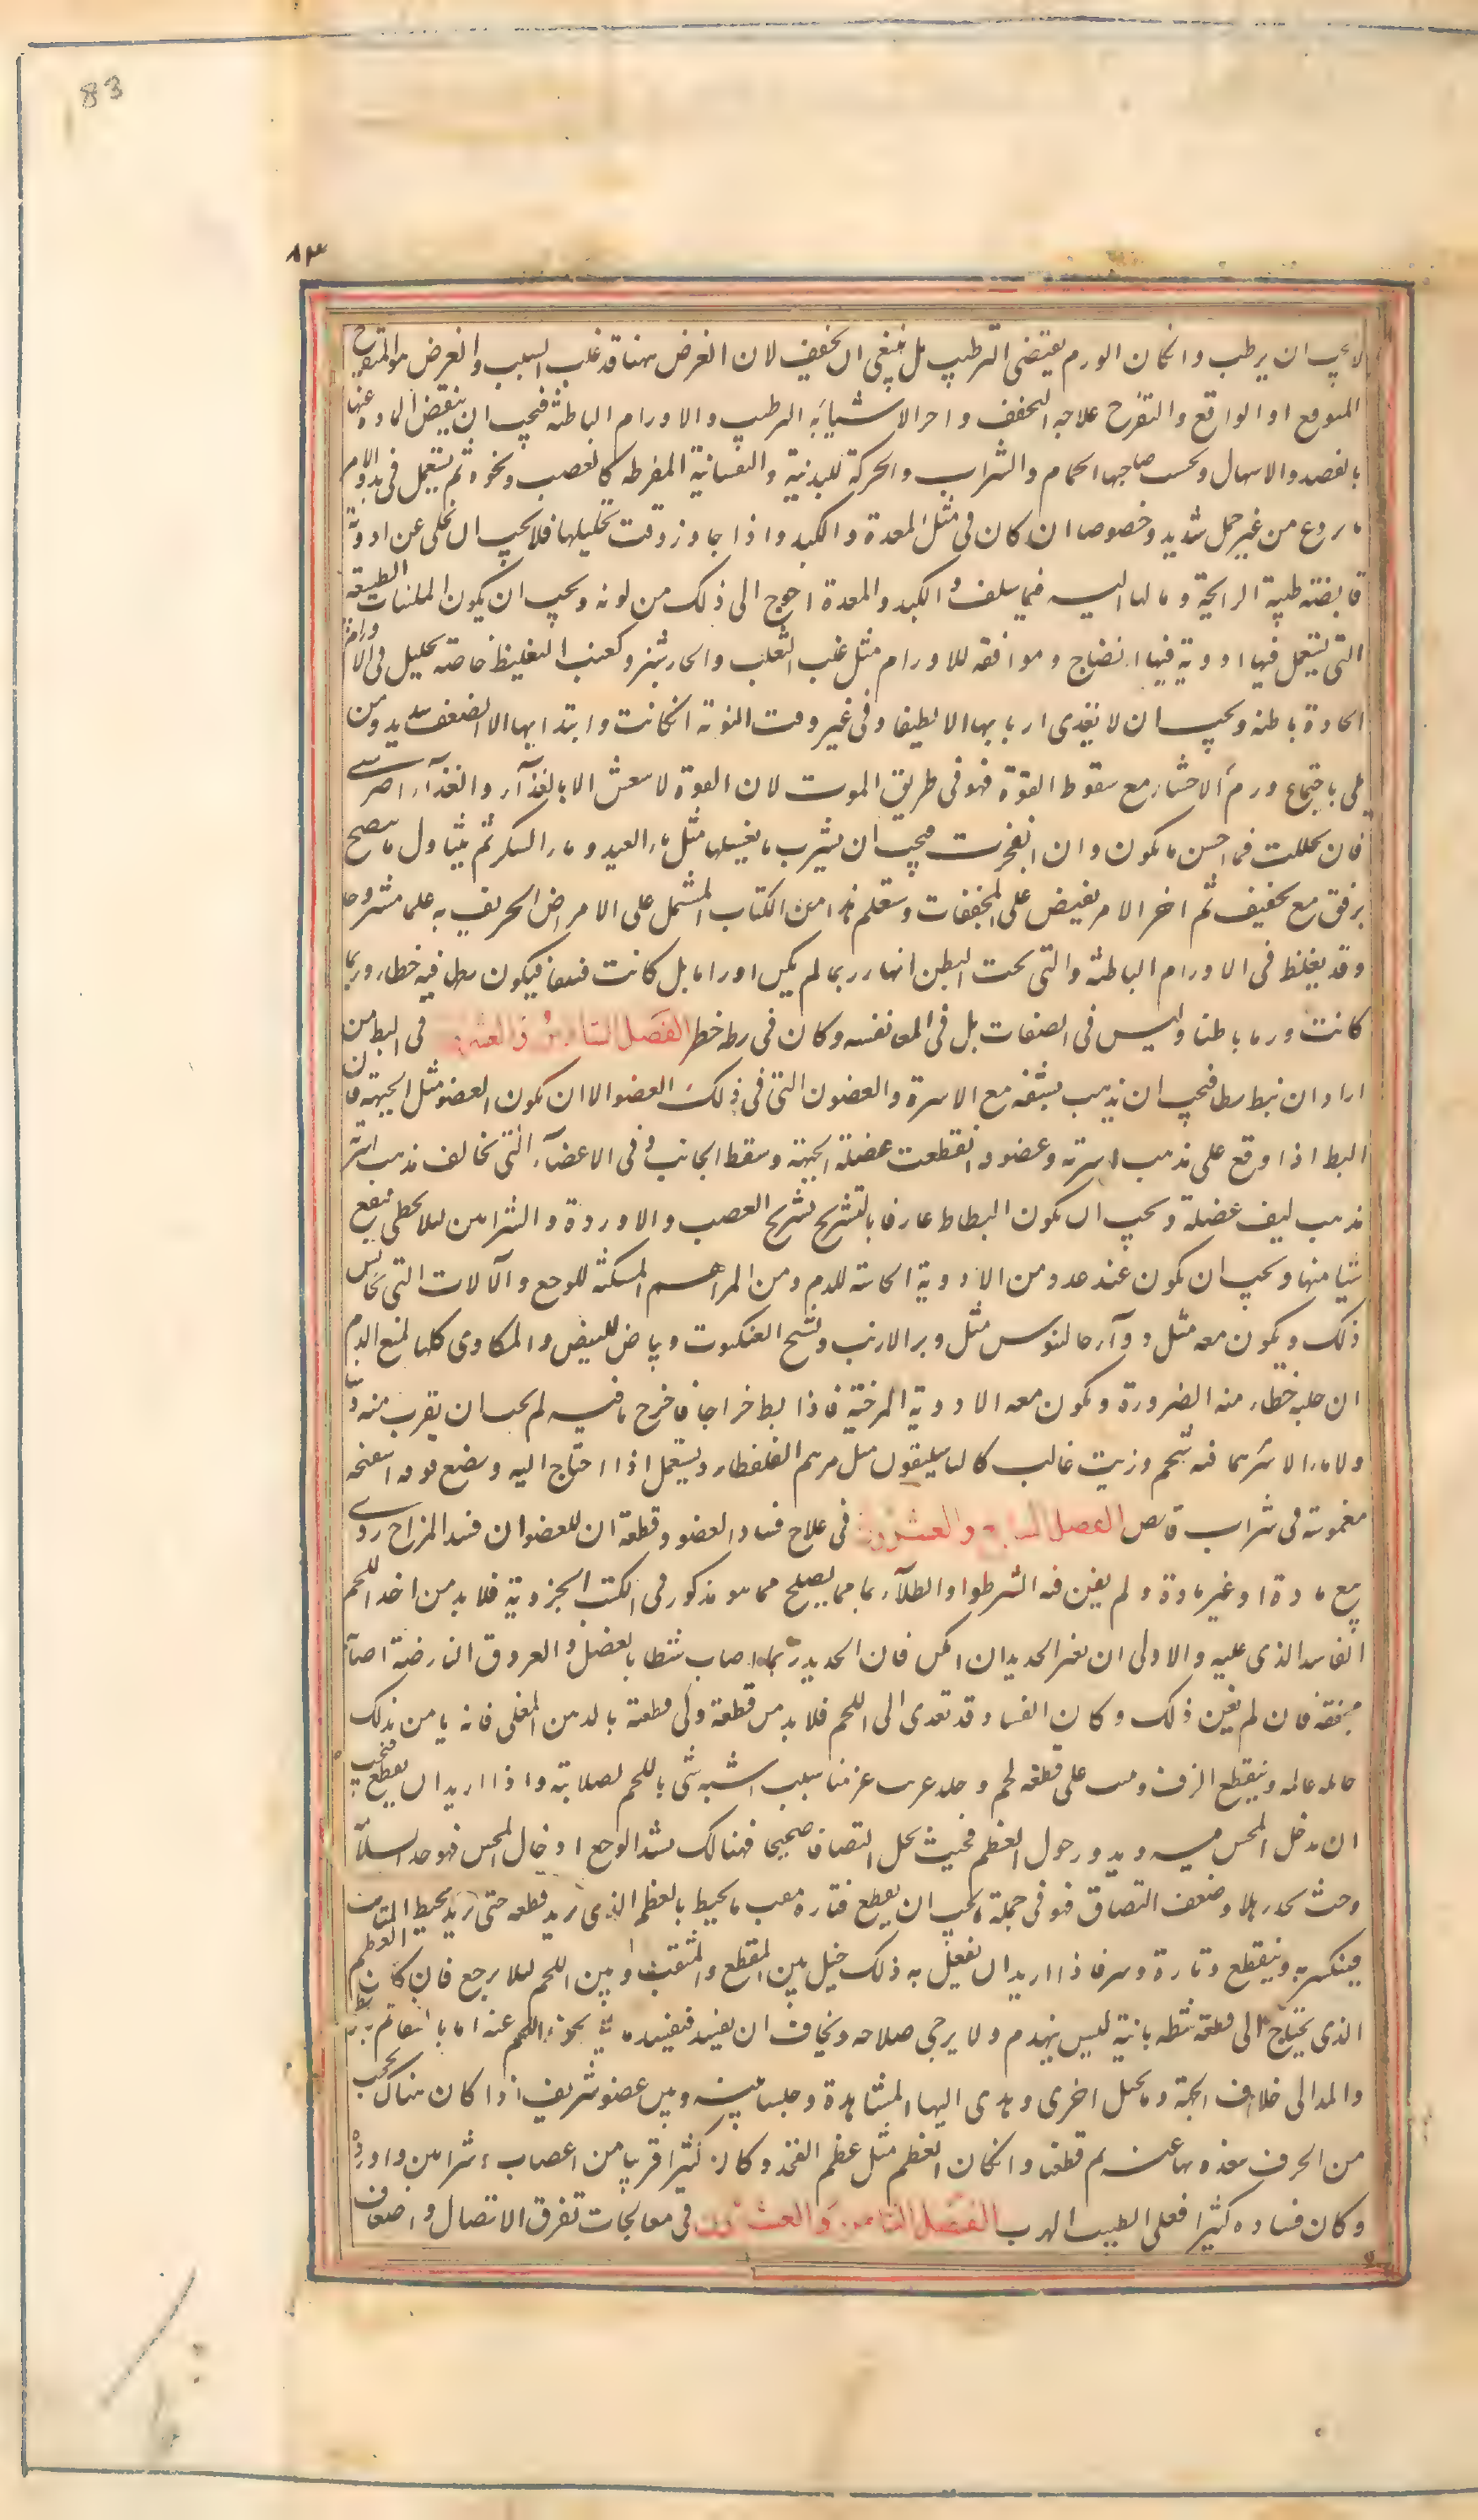 83
٨٣
لا يجب ان يرطب وان كان الورم يقتضى الترطيب بل ينبغى ان يجفف لان الغرض ههنا قد غلب السبب والغرض هو التقرح
المتوقع او الواقع والتقرح علاجه التجفيف واضر الاشياء به الترطيب والاورام الباطنة فيجب ان ينقص المادة عنها
بالفصد والاسهال ويجتنب صاحبها الحمام والشراب والحركة البدنية والنفسانية المفرطه كالغضب ونحوه ثم يستعمل فى بدو الامر
ما يردع من غير حمل شديد وخصوصا ان كان فى مثل المعدة والكبد واذا جاوز وقت تحليلها فلا يجب ان يخلى عن ادوية
قابضة طيبة الرايحة وما لها اليه فيما سلف والكبد والمعدة احوج الى ذلك من لونه ويجب ان يكون الملينات الطبيعة
التى تستعمل فيها ادوية فيها انضاج وموافقه للاورام مثل عنب الثعلب والخيارشنبر ولعنب الثعلب خاصة تحليل فى الاورام
الحادة باطنه ويجب ان لا يغذى اربابها الا لطيفا وفى غير وقت النوبة ان كانت وابتدايها الا لضعف شديد ومن
بلى باجتماع ورم الاحشاء مع سقوط القوة فهو فى طريق الموت لان القوة لا تنعش الا بالغذآء والغذآء اضر شى
فان تحللت فما احسن ما يكون وان انفجرت فيجب ان يشرب ما يغسلها مثل ماء العسل وماء السكر ثم يتناول ما ينضج
برفق مع تجفيف ثم اخر الامر يقتصر على المجففات وستعلم هذا من الكتاب المشتمل على الامراض الجزئية علما مشروحا
وقد يغلط فى الاورام الباطنة والتى تحت البطن انها ربما لم يكن اوراما بل كانت فتقا فيكون بطها فيه خطاء وربما
كانت ورما باطنا وليس فى الصفاق بل فى المعا نفسه وكان فى بطه خطر الفصل السادس والعشرون فى البط من
اراد ان يبط بطا فيجب ان يذهب بشقه مع الاسرة والغضون التى فى ذلك العضو الا ان يكون العضو مثل الجبهة فان
البط اذا وقع على مذهب اسرته وغضونه انقطعت عضلة الجبهة وسقط الحاجب وفى الاعضآء التى تخالف مذهب اسرته
مذهب ليف عضلة ويجب ان يكون البطاط عارفا بالتشريح تشريح العصب والاوردة والشرايين ليلا يخطى فيقطع
شيا منها ويجب ان يكون عنده عدد من الادوية الحابسة للدم ومن المراهم المسكنة للوجع والآلات التى تجانس
ذلك ويكون معه مثل دوآء جالينوس مثل وبر الارنب ونسج العنكبوت وبياض البيض والمكاوى كلها لمنع الدم
ان جلبه خطاء منه الضرورة ويكون معه الادوية المرخية فاذا بط خراجا فاخرج ما فيه لم يجب ان يقرب منه دهنا
ولا ماء ولا مرهما فيه شحم وزيت غالب كالباسليقون بل مثل مرهم القلقطار ويستعمل اذا احتاج اليه ويضع فوقه اسفنجة
مغموسة فى شراب قابض الفصل السابع والعشرون فى علاج فساد العضو وقطعة ان العضو ان فسد لمزاج ردى
مع مادة او غير مادة ولم يغن فيه الشرط او الطلآء بما يصلح مما هو مذكور فى الكتب الجزوية فلا بد من اخذ اللحم
الفاسد الذى عليه والاولى ان بغير الحديد ان امكن فان الحديد ربما اصاب شظايا العضل والعروق النابضة اصابة
مجحفة فان لم يغن ذلك وكان الفساد قد تعدى الى اللحم فلا بد من قطعة وكى قطعة بالدهن المغلى فانه يامن بذلك
وينقطع النزف وينبت على قطعه لحم وجلد غريب غير مناسب اشبه شى باللحم لصلابته واذا اريد ان يقطع فيجب
ان يدخل المجس فيه ويدور حول العظم فحيث يجد التصاقا صحيحا فهنالك يشتد الوجع ادخال المجس فهو حد السلامة
وحيث يجد رهلا وضعف التصاق فهو فى جملة ما يجب ان يقطع فتارة يثقب ما يحيط بالعظم الذى يريد قطعه حتى يحيط المثاقب
فينكسر به وينقطع وتارة ينشر فاذا اريد ان يفعل به ذلك حيل بين المقطع والمثقب وبين اللحم ليلا يوجع فان كان العظم
الذى يحتاج الى قطعة شظية نابتة ليس ينهدم ولا يرجى صلاحه ويخاف ان يفسد فيفسد ما يليه نحى اللحم عنه اما بالشق ثم ربط
والمد الى خلاف الجهة واما بحيل اخرى ويهدى اليها المشاهدة وحلنا بينه وبين عضو شريف اذا كان هناك يحجب
من الخرق نبعده بها عنه ثم قطعنا وان كان العظم مثل عظم الفخذ وكان كثيرا قريبا من اعصاب وشرايين واوردة
وكان فساده كثيرا فعلى الطبيب الهرب الفصل الثامن والعشرون فى معالجات تفرق الاتصال واصناف